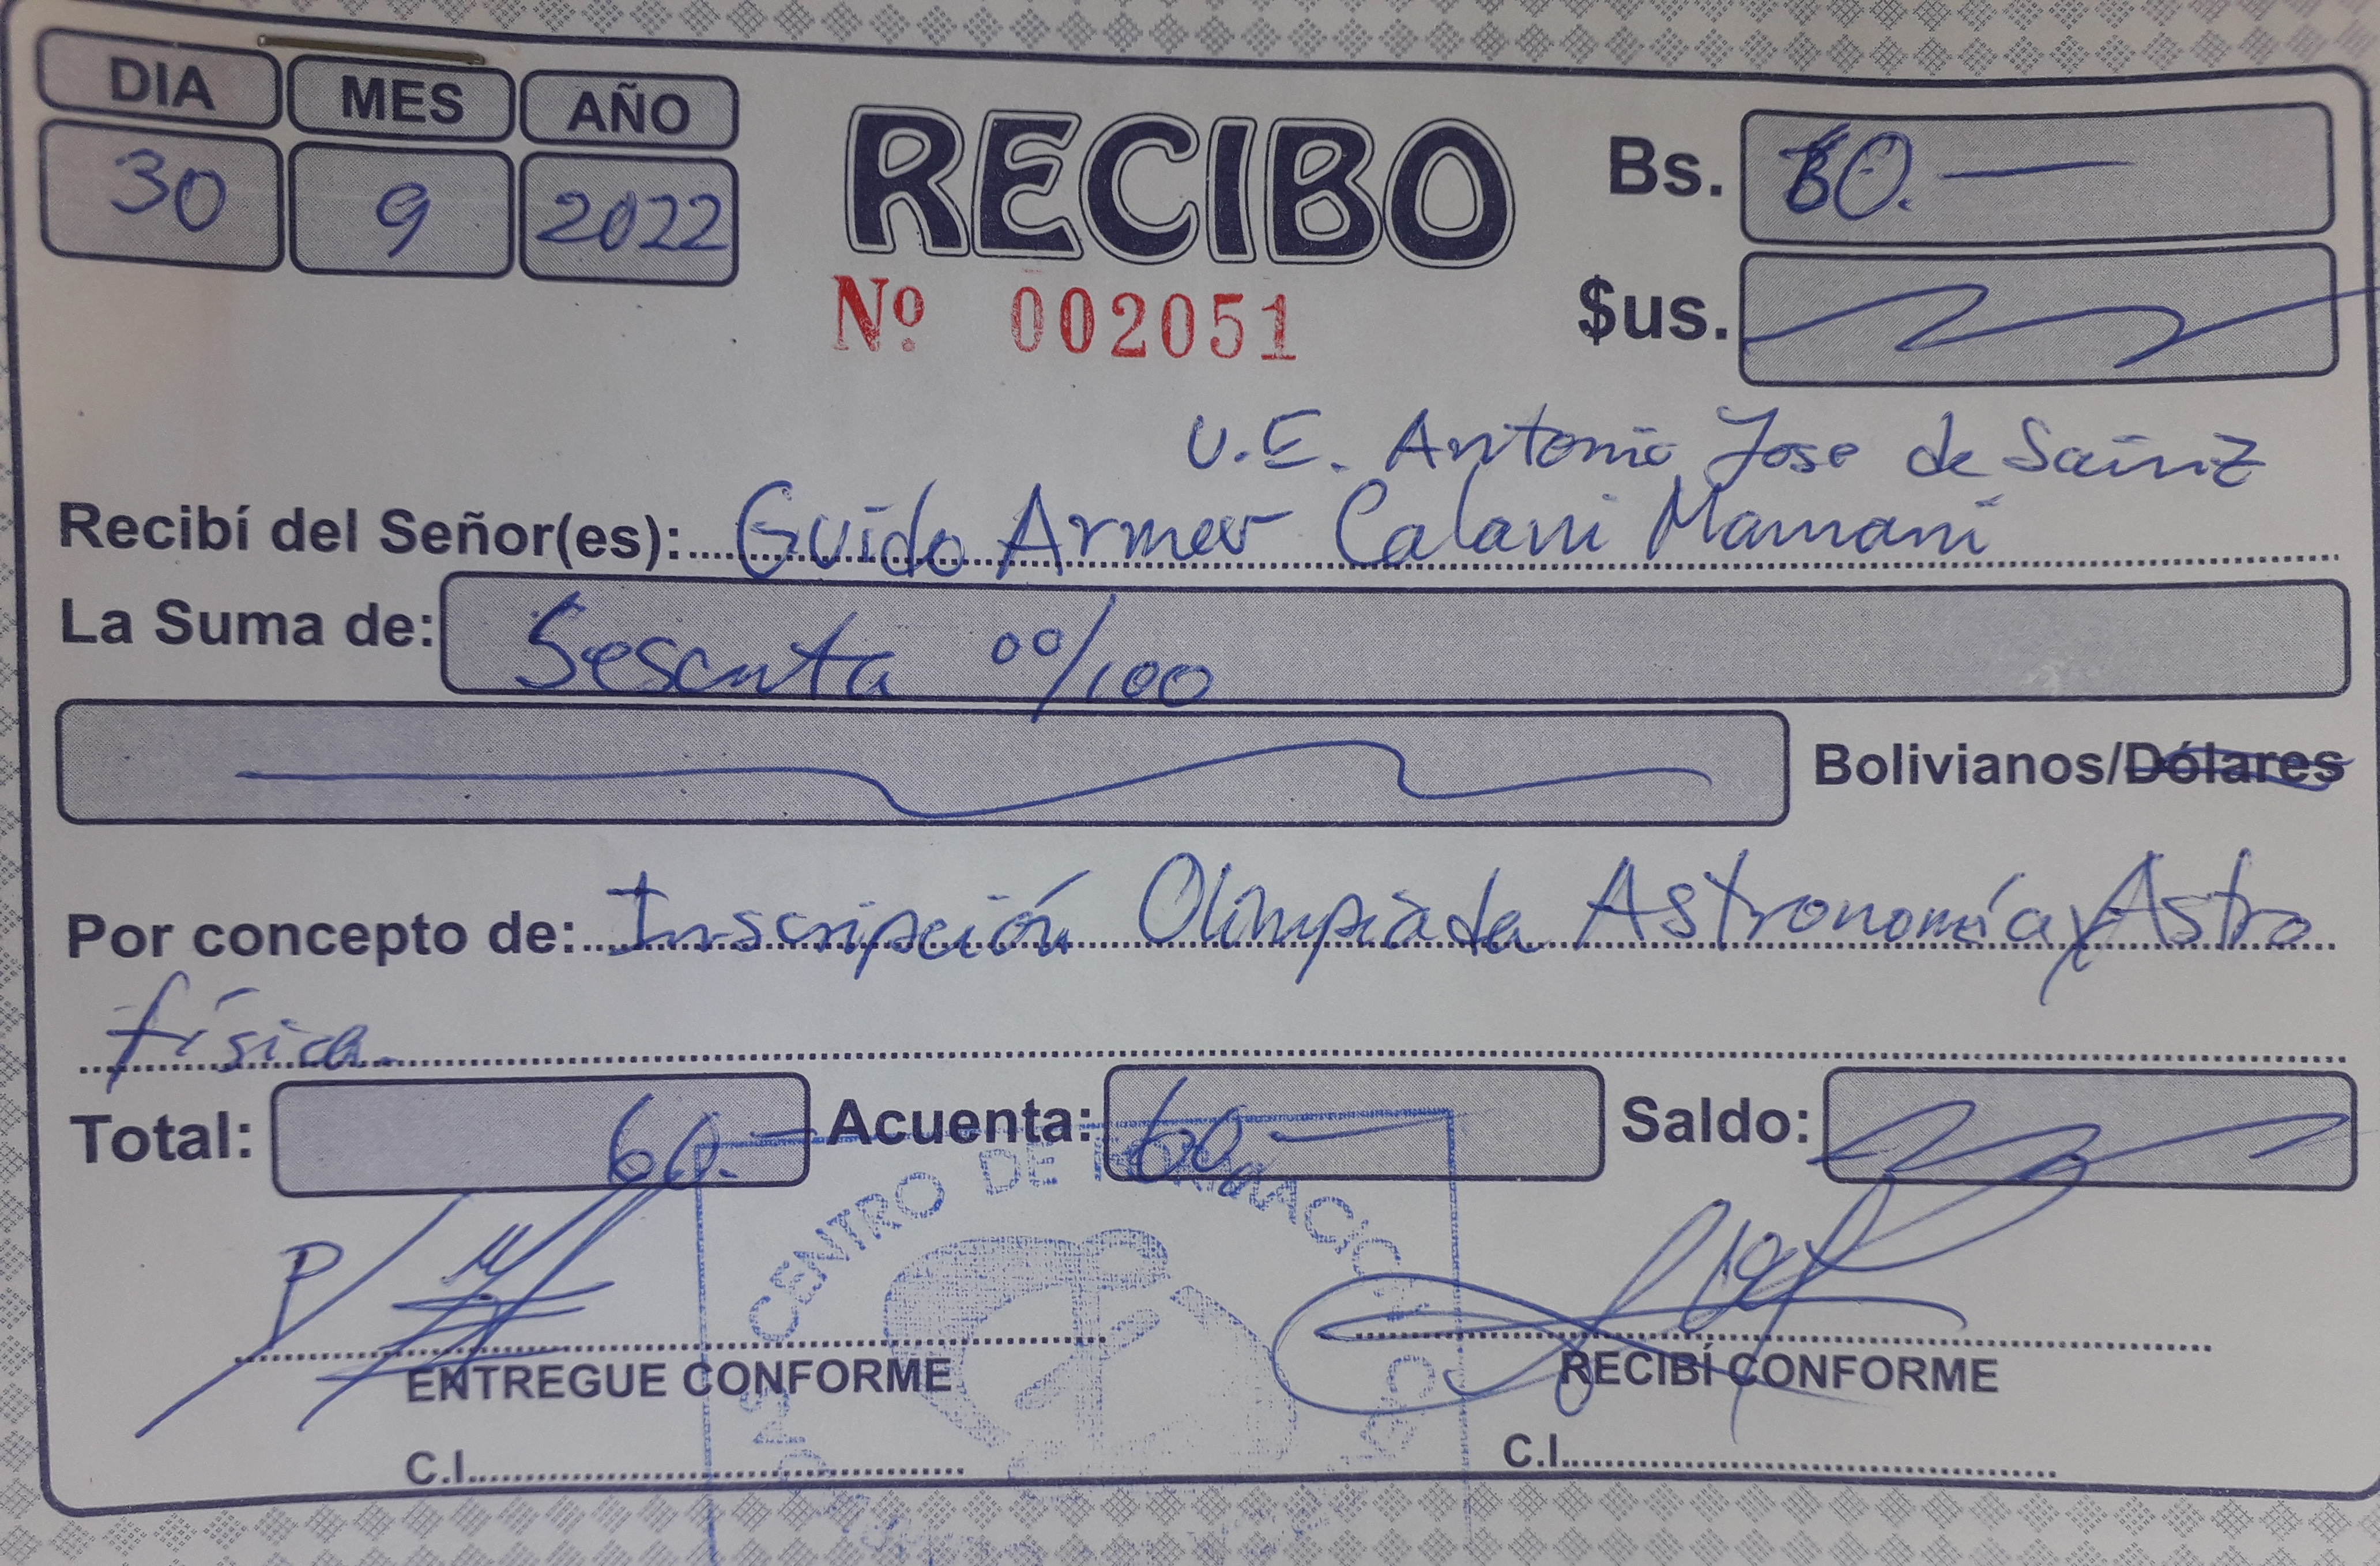 DIA MES AÑO
30 9 2022
RECIBO
Nº 002051
Bs. 60.-
$us.
U.E. Antonio Jose de Sainz
Recibí del Señor(es): Guido Armer Calani Mamani
La Suma de: Sesenta 00/100
Bolivianos/Dólares
Por concepto de: Inscripción Olimpiada Astronomía y Astro
física
Total: 60.- Acuenta: 60.- Saldo:
CENTRO DE
ENTREGUE CONFORME RECIBÍ CONFORME
C.I. C.I.